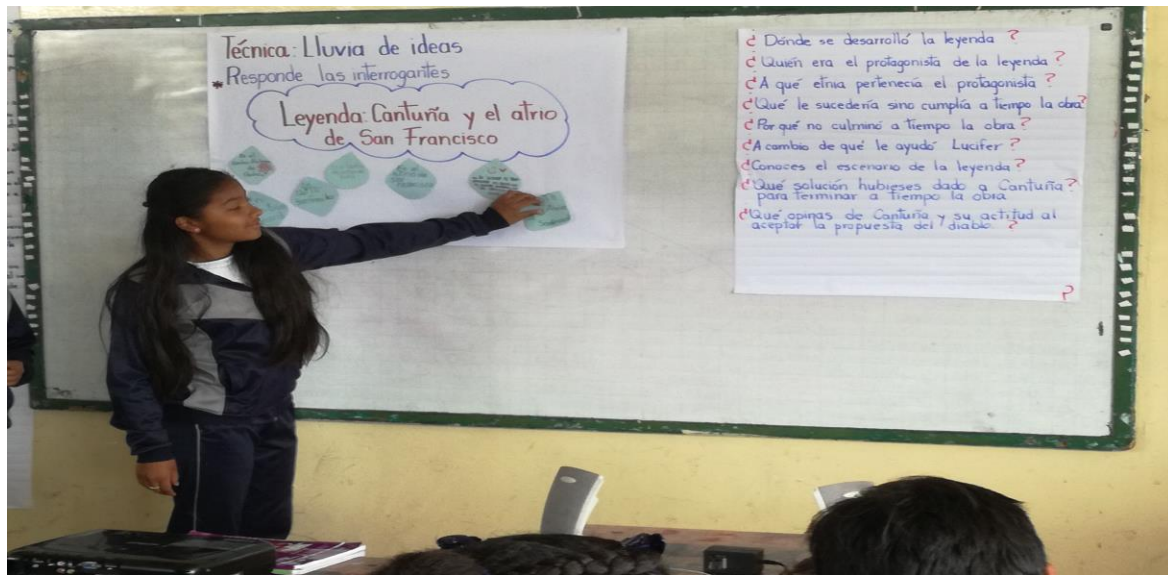 Técnica: Lluvia de ideas
* Responde las interrogantes
Leyenda: Cantuña y el atrio
de San Francisco
¿ Dónde se desarrolló la leyenda ?
¿ Quién era el protagonista de la leyenda ?
¿ A qué etnia pertenecía el protagonista ?
¿ Qué le sucedería sino cumplía a tiempo la obra?
¿ Por qué no culminó a tiempo la obra ?
¿A cambio de qué le ayudó Lucifer ?
¿Conoces el escenario de la leyenda ?
¿Qué solución hubieses dado a Cantuña?
para terminar a tiempo la obra
¿Qué opinas de Cantuña y su actitud al
aceptar la propuesta del diablo. ?
?